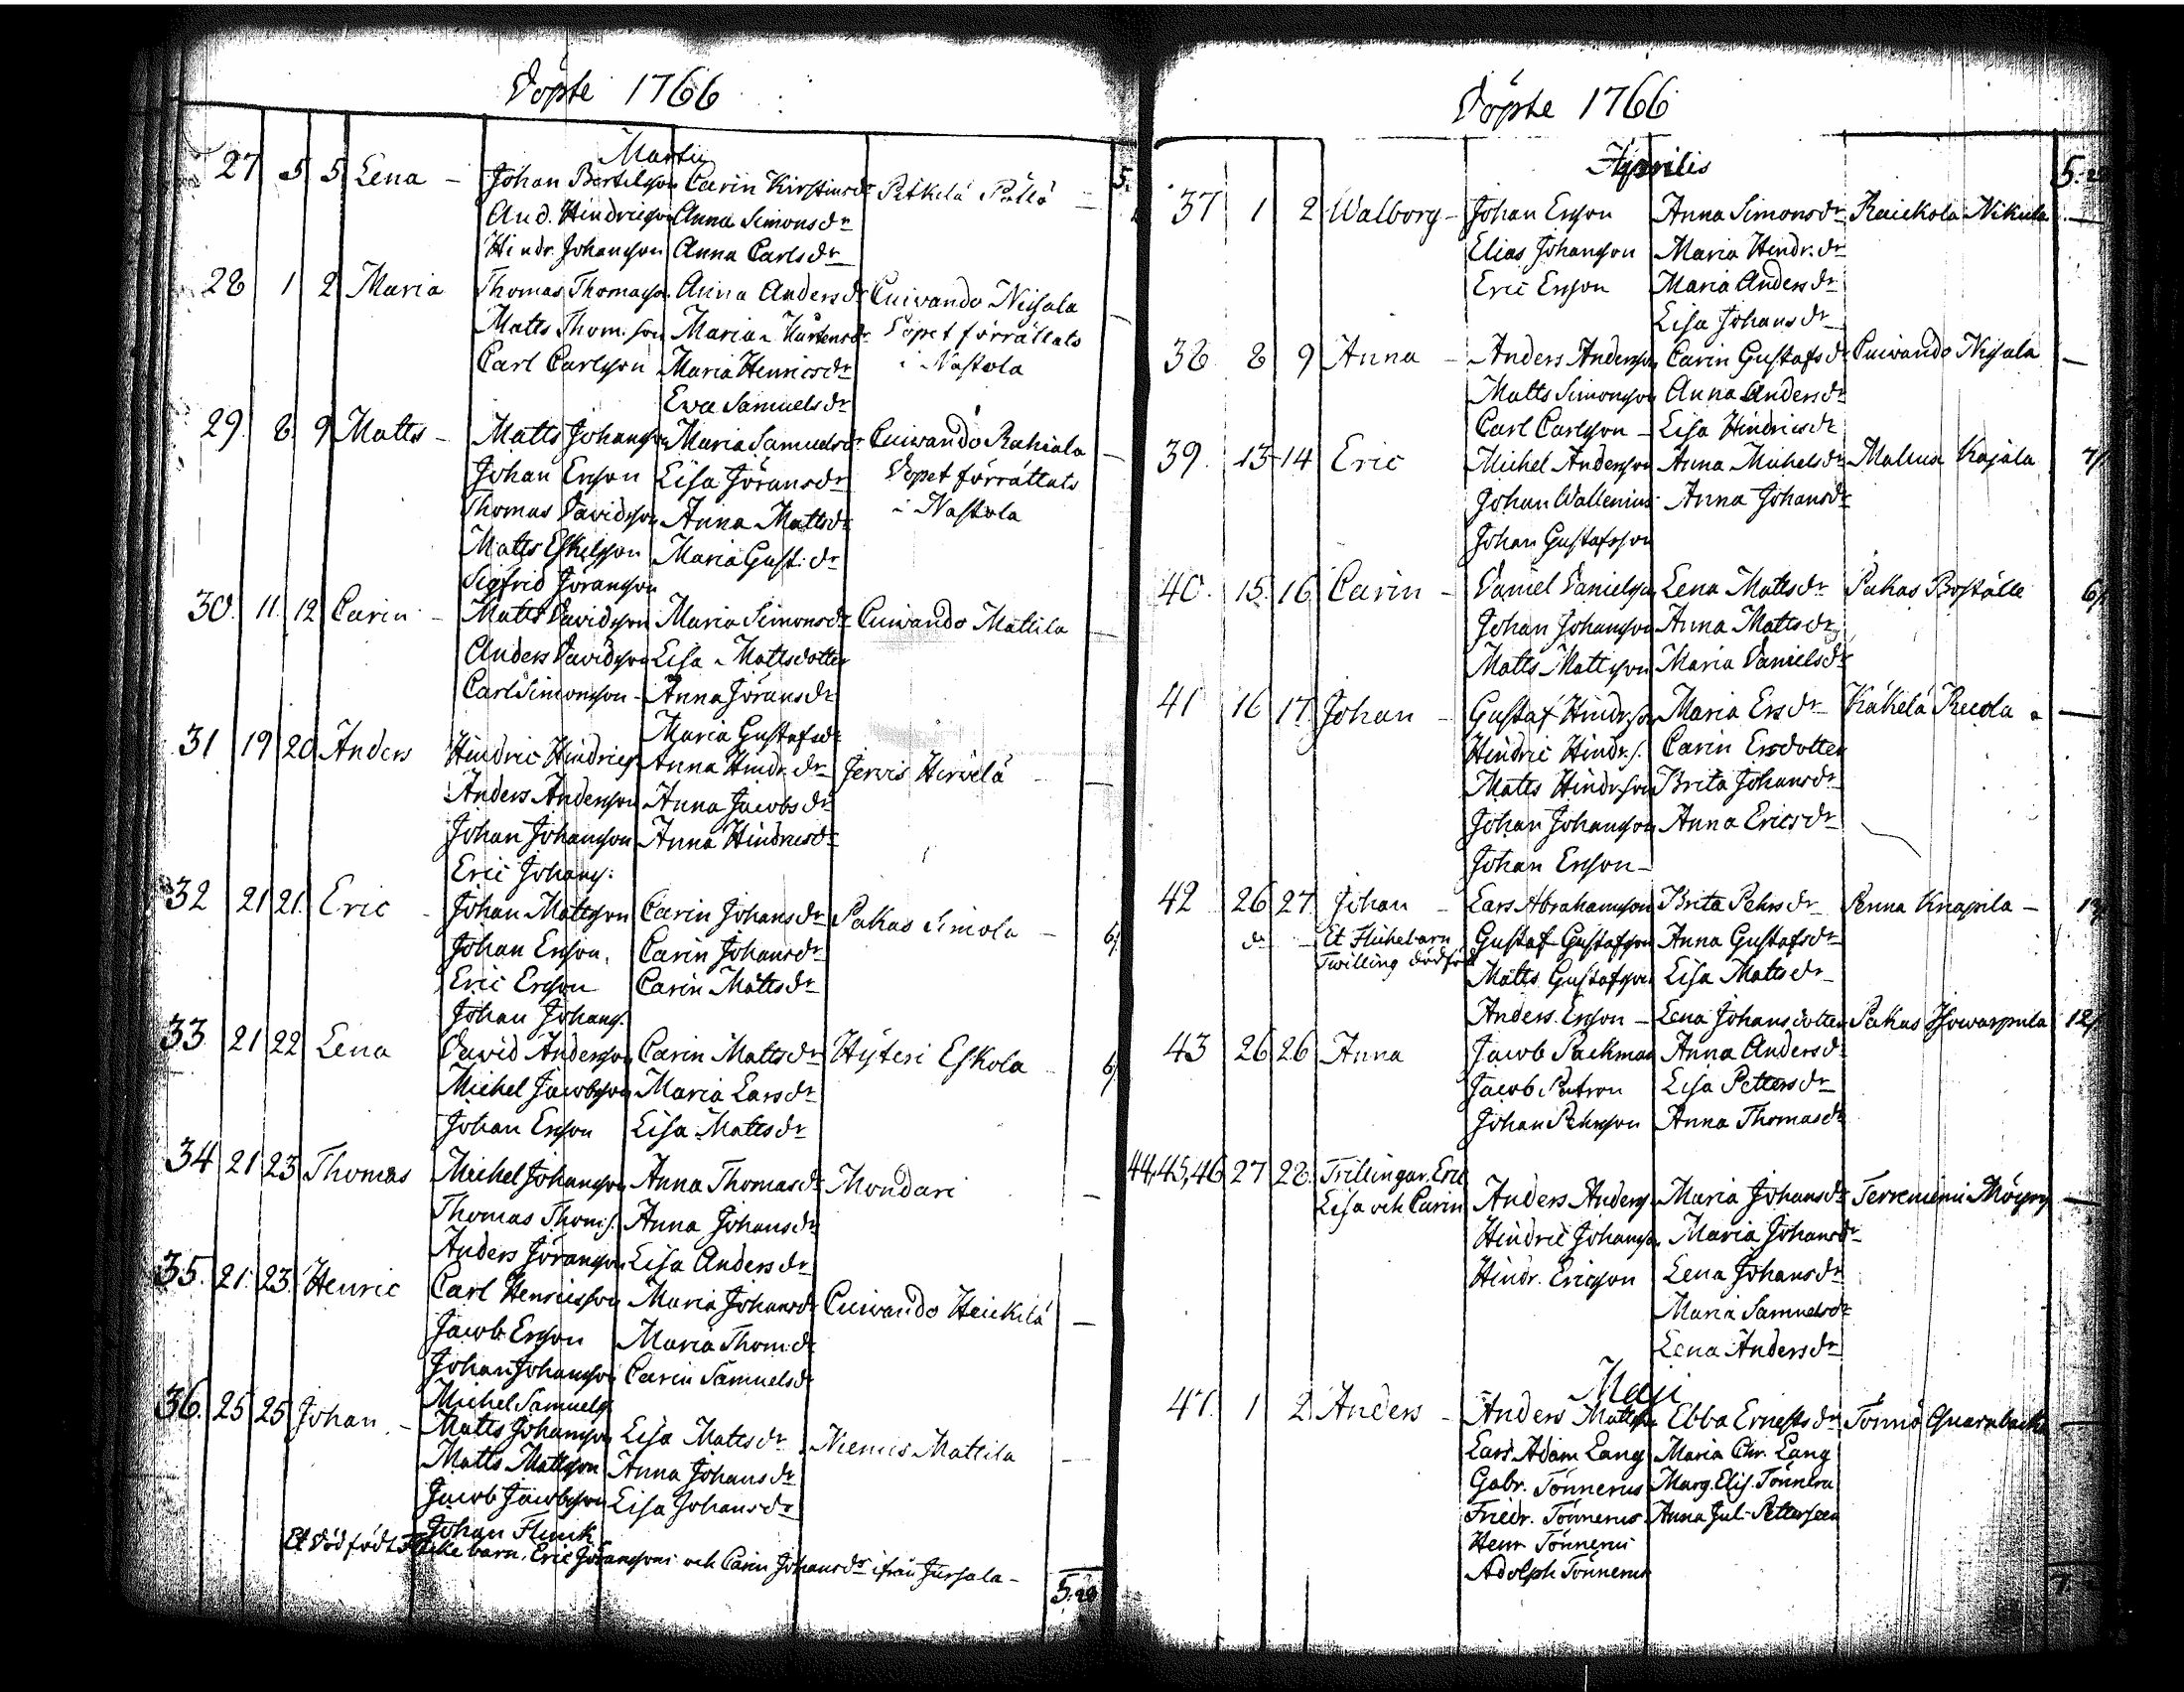 Döpte 1766
Martij
27 5 5 Lena - Johan Bertilsson Carin Kirstinsdr Pätkelä Pällä - 5.
And. Hindricsson Anna Simonsdr
Hindr. Johansson Anna Carlsdr
28 1 2 Maria Thomas Thomasson Anna Andersdr Cuivando Nisala
Matts Thom. son Maria Mårtensdr Döpet förrättats
Carl Carlsson Maria Henricsdr i Nastola
Ewa Samuelsdr
29. 8 9 Matts - Matts Johansson Maria Samuelsdr Cuivando Rahiala -
Johan Ersson Lisa Jöransdr Döpet förrättats
Thomas Davidsson Anna Mattsdr i Nastola
Matts Eskelsson Maria Gust: dr
Sigfrid Jöransson
30. 11. 12 Carin - Matts Davidsson Maria Simonsdr Cuivando Mattila -
Anders Davidsson Lisa Mattsdotter
Carl Simonsson - Anna Jöransdr
Maria Gustafsdr
31 19 20 Anders Hindric Hindrics. Anna Hindr. dr Jervis Hirvelä -
Anders Andersson Anna Jacobsdr
Johan Johansson Anna Hindricsdr
Eric Johans:
32 21 21. Eric - Johan Mattsson Carin Johansdr Pakas Simola - 6/
Johan Ersson. Carin Johansdr
Eric Ersson Carin Mattsdr
Johan Johans.
33 21 22 Lena David Andersson Carin Mattsdr Hyteri Eskola - 6/
Michel Jacobsson Maria Larsdr
Johan Ersson Lisa Mattsdr
34 21 23 Thomas Michel Johansson Anna Thomasdr Mondari -
Thomas Thoms. Anna Johansdr
Anders Jöransson Lisa Andersdr
35. 21. 23. Henric Carl Henricsson Maria Johansdr Cuivando Heickilä -
Jacob Ersson Maria Thom. dr
Johan Johansson Carin Samuelsdr
Michel Samuels.
36. 25 25 Johan. - Matts Johansson Lisa Mattsdr Niemis Mattila -
Matts Mattsson Anna Johansdr
Jacob Jacobsson Lisa Johansdr
Johan Flinck
Et dödfödt Flicke barn. Eric Jöranssons och Carin Johansdr ifrån Jursala -
5.20
Döpte 1766
Aprilis
5.
37 1 2 Walborg - Johan Ersson Anna Simonsdr Raickola Nikula -
Elias Johansson Maria Hindr. dr
Eric Ersson Maria Andersdr
Lisa Johansdr
38 8 9 Anna - Anders Andersson Carin Gustafsdr Cuivando Nisala -
Matts Simonsson Anna Andersdr
Carl Carlsson - Lisa Hindricsdr
39. 13 14 Eric Michel Andersson Anna Michelsdr Malusa Kajala
Johan Wallenius Anna Johansdr
Johan Gustafsson
40. 15. 16 Carin - Daniel Danielsson Lena Mattsdr Pakas Boställe 6/
Johan Johansson Anna Mattsdr
Matts Mattsson Maria Danielsdr
41 16 17 Johan - Gustaf Hindr.son Maria Ersdr Käkelä Recola -
Hindric Hindr.s. Carin Ersdotter
Matts Hindrsson Brita Johansdr
Johan Johansson Anna Ericsdr
Johan Ersson -
42 26 27 Johan - Lars Abrahamsson Brita Pehrsdr Penna Knapila -
do - Et Flickebarn Gustaf Gustafsson Anna Gustafsdr
Twilling dödfödt Matts Gustafsson Lisa Mattsdr
Anders Ersson - Lena Johansdotter Pakas 12/
43 26 26 Anna Jacob Packman Anna Andersdr
Jacob Patron Lisa Pettersdr
Johan Pehrsson Anna Thomasdr
44,45,46 27 28. Trillingar. Eric
Lisa och Carin Anders Anders. Maria Johansdr Terreniemi -
Hindric Johansson Maria Johansdr
Hindr. Ericsson Lena Johansdr
Maria Samuelsdr
Lena Andersdr
Maji
47. 1 2 Anders - Anders Mattson Ebba Ernestsdr Tönnö Quarnbacka
Lars Adam Lang Maria Chr. Lang
Gabr. Tönnerus Marg. Elis. Tönnera
Friedr. Tönnerus Anna Jul. Petterseen
Henr Tönnerus
Adolph Tönnerus